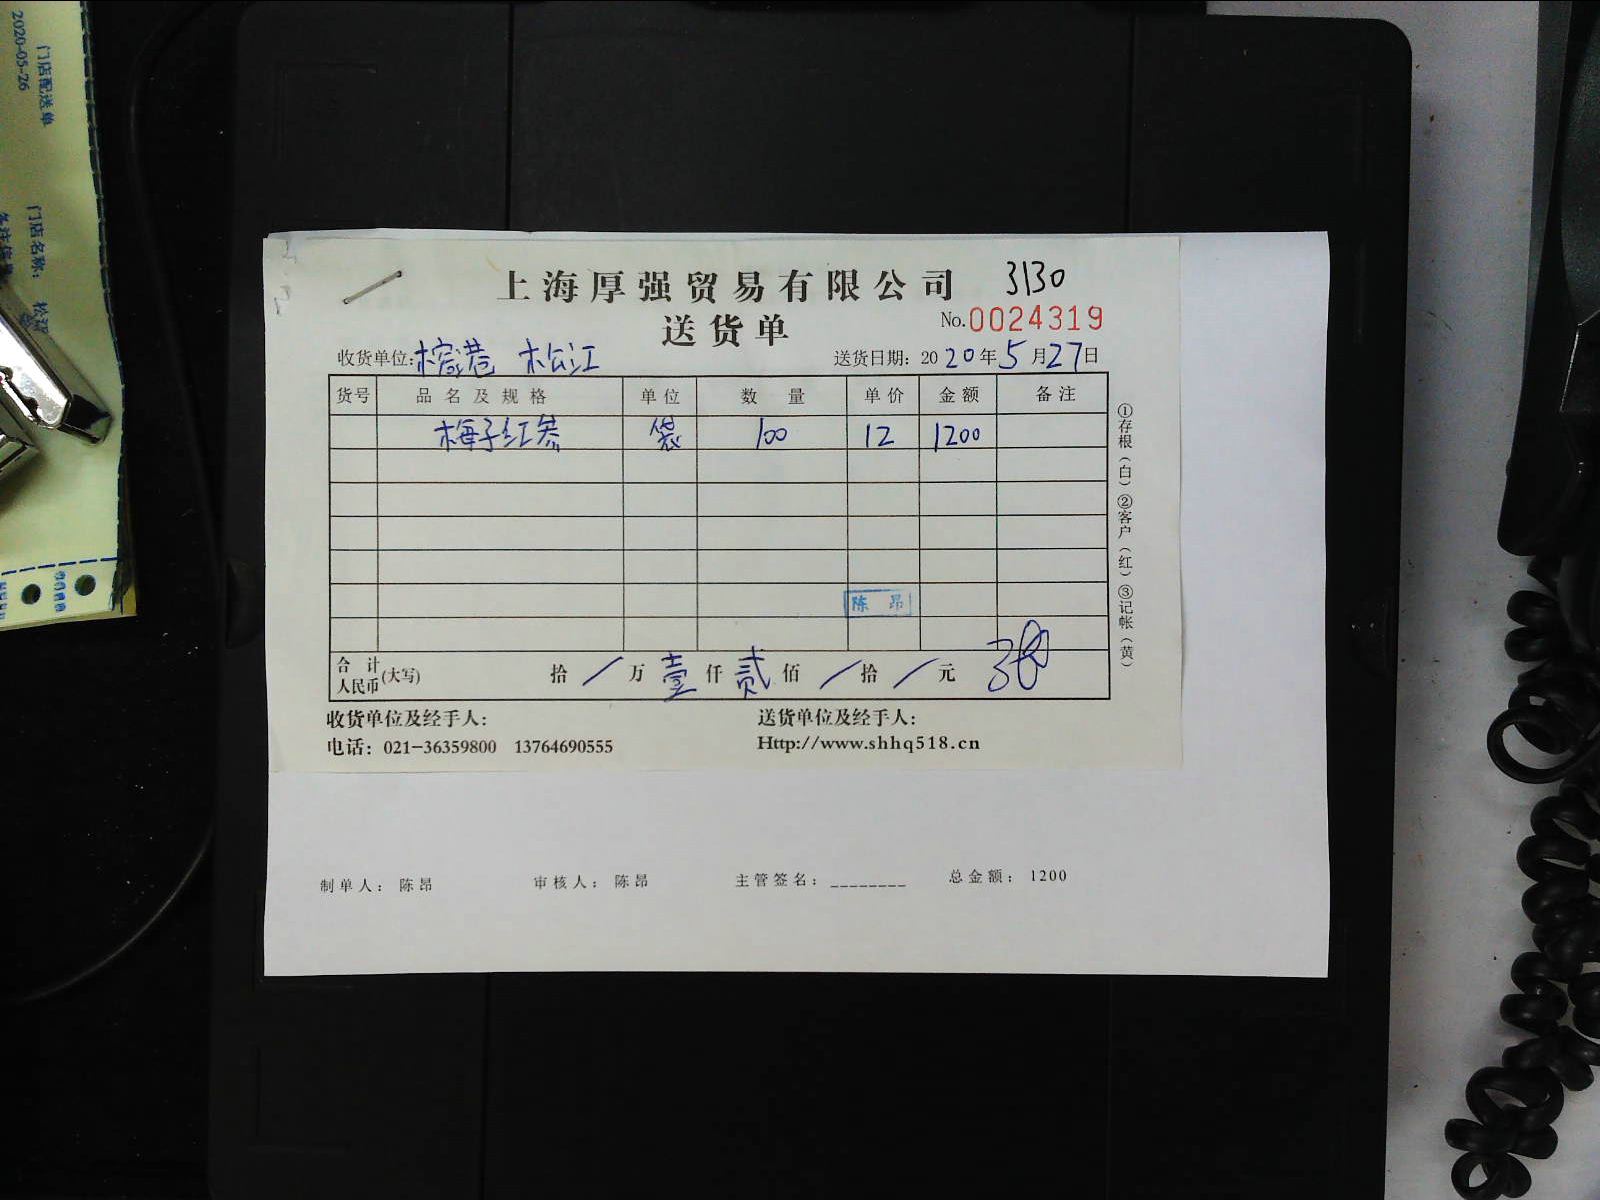 门店配送单
2020-05-26
门店名称: 松江
上海厚强贸易有限公司 3130
送货单 No.0024319
收货单位:榕港 松江 送货日期: 2020年5月27日
货号 品名及规格 单位 数量 单价 金额 备注
梅子红参 袋 100 12 1200
陈昂
合计人民币(大写) 拾/万壹仟贰佰/拾/元
收货单位及经手人: 送货单位及经手人:
电话: 021-36359800 13764690555 Http://www.shhq518.cn
①存根(白)②客户(红)③记帐(黄)
制单人: 陈昂 审核人: 陈昂 主管签名: ________ 总金额: 1200